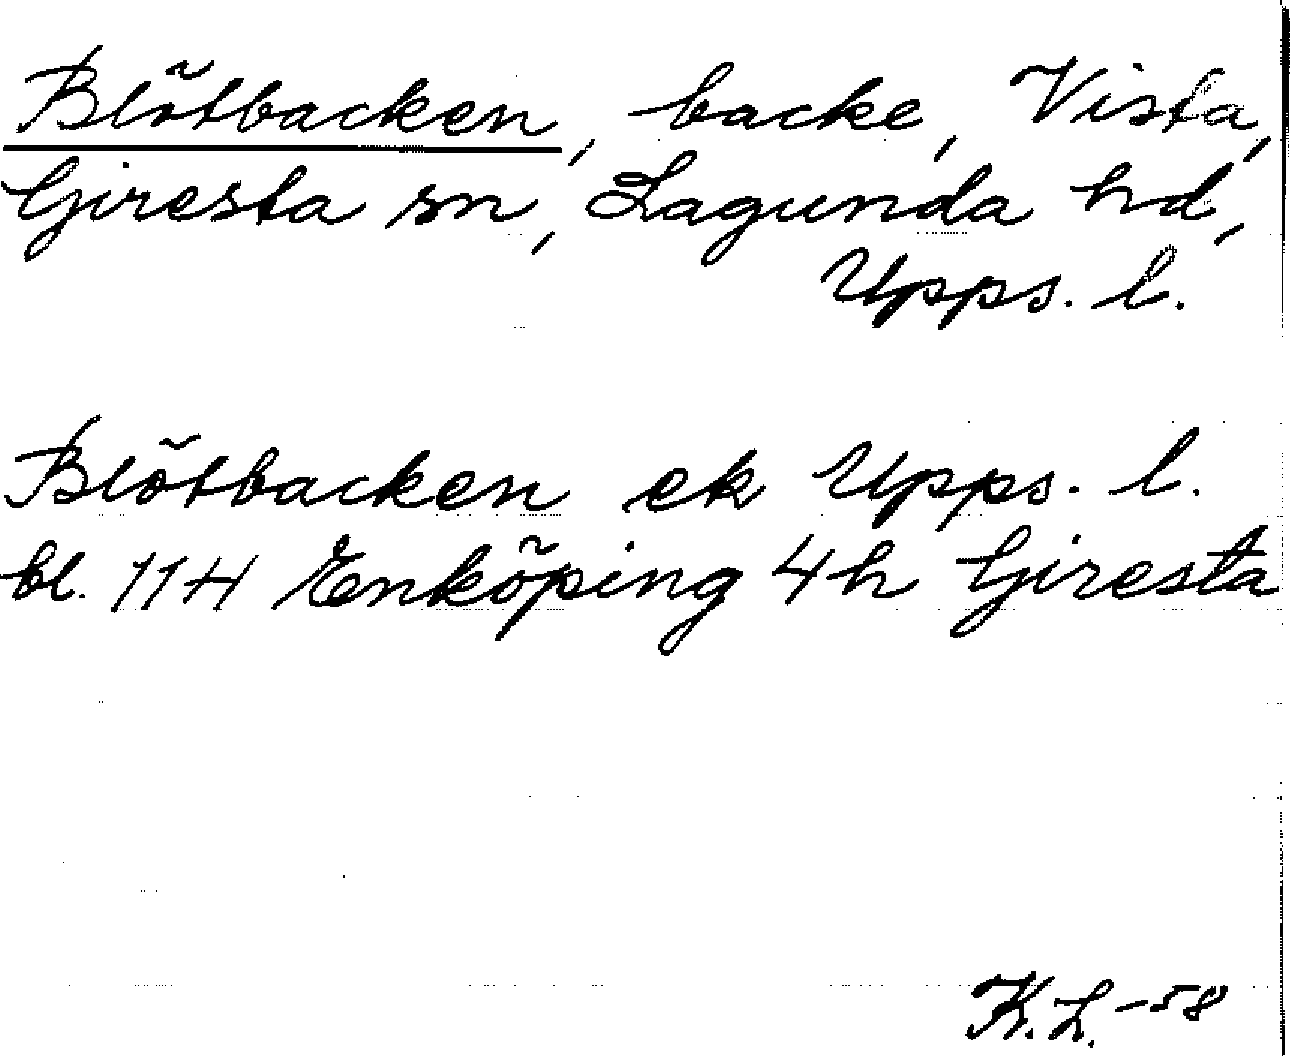 Blötbacken, backe, Vista,
Giresta sn, Lagunda hd,
Upps. l.
Blötbacken ek Upps. l.
bl. 11H Enköping 4h Giresta
K. L. -58